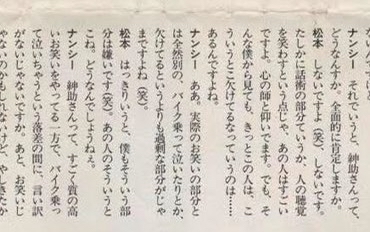 ナンシー　それでいうと、紳助さんって、
どうなんすか。全面的に肯定しますか。
松本　しないですよ（笑）。しないです。
たしかに話術の部分ていうか、人の聴覚
を笑わすという点じゃ、あの人はすごい
ですよ。心の師と仰いでます。でも、そ
んな僕から見ても、きっとこの人は、こ
ういうとこ欠けてるなっていうのは……
あるんですよ。
ナンシー　ああ。実際のお笑いの部分と
は全然別の、バイク乗って泣いたりとか、
欠けてるというよりも過剰な部分がじゃ
まですよね（笑）。
松本　はっきりいうと、僕もそういう部
分は嫌いです（笑）。あの人のそういうと
こね。どうなんでしょうねぇ。
ナンシー　紳助さんって、すごく質の高
いお笑いをやってる一方で、バイク乗っ
て泣いちゃうという落差の間に、言い訳
がないじゃないですか。あと、お笑いじ